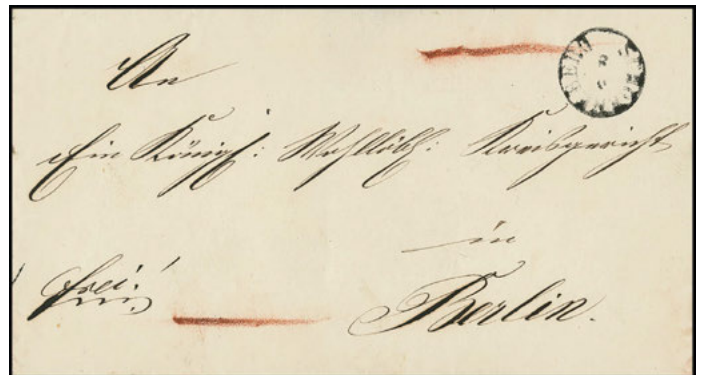 An
Ein Königl: Wohllöbl: Kreisgericht
in
frei!
Berlin.